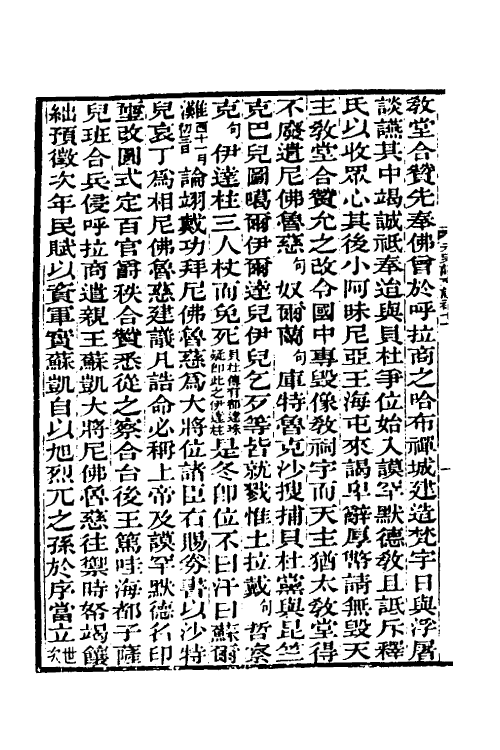 教堂合贊先奉佛曾於呼拉商之哈布禪城建造梵宇日與浮屠
談讌其中竭誠祗奉迨與貝杜爭位始入謨罕默德教且詆斥釋
氏以收眾心其後小阿昧尼亞王海屯來謁卑辭厚幣請無毀天
主教堂合贊允之改令國中專毀像教祠宇而天主猶太教堂得
不廢遣尼佛魯慈句奴爾蘭句庫特魯克沙搜捕貝杜黨與昆竺
克巴兒圖噶爾伊爾達兒伊兒乞歹等皆就戮惟土拉戴句哲察
克句伊達柱三人杖而免死貝杜傳有都達珠疑即此之伊達柱是冬即位不曰汗曰蘇爾
灘西十一月初三日論翊戴功拜尼佛魯慈為大將位諸臣右賜券書以沙特
兒哀丁為相尼佛魯慈建議凡誥命必稱上帝及謨罕默德名印
璽改圓式定百官爵秩合贊悉從之察合台後王篤哇海都子薩
兒班合兵侵呼拉商遣親王蘇凱大將尼佛魯慈往禦時帑竭饟
絀預徵次年民賦以資軍實蘇凱自以旭烈兀之孫於序當立世次